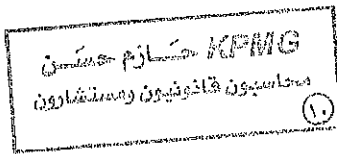 KPMG حازم حسن
محاسبون قانونيون ومستشارون
(١٠)